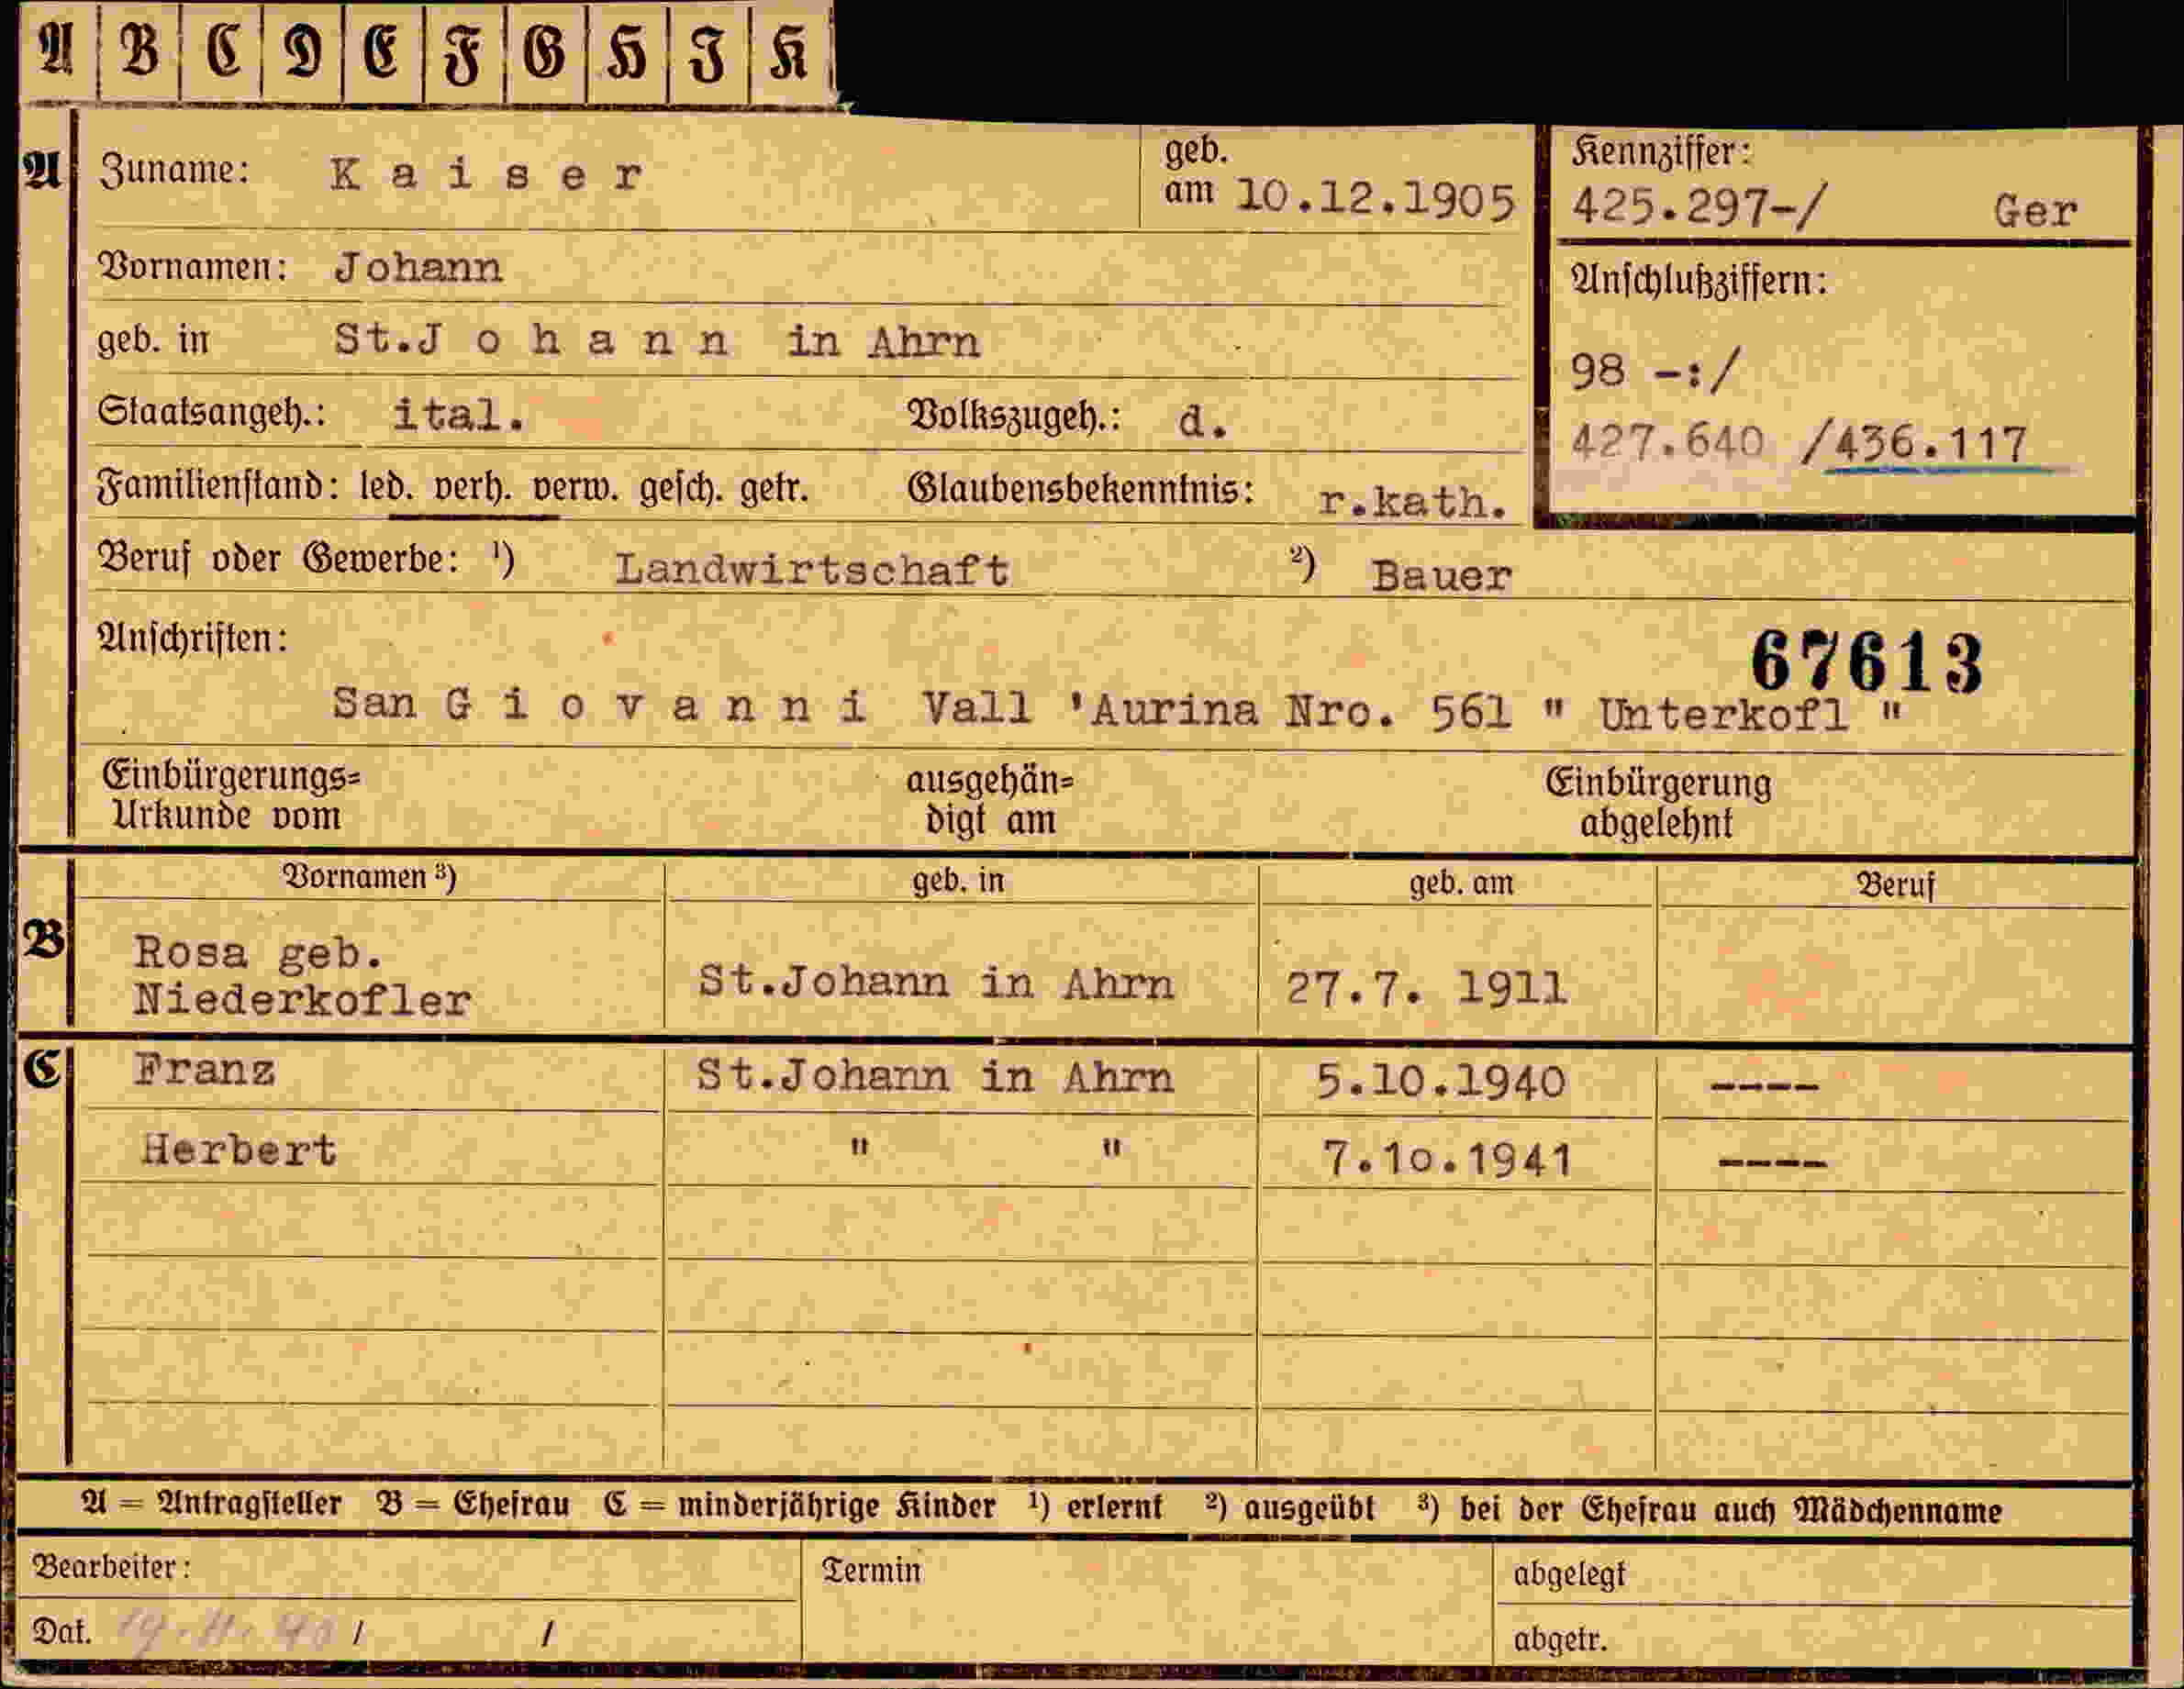 A B C D E F G H I K
A Zuname: K a i s e r geb. am 10.12.1905
Kennziffer:
425.297-/ Ger
Vornamen: Johann
Anschlußziffern:
geb. in St.J o h a n n in Ahrn
98 -:/
Staatsangeh.: ital. Volkszugeh.: d.
427.640 /436.117
Familienstand: led. verh. verw. gesch. getr. Glaubensbekenntnis: r.kath.
Beruf oder Gewerbe: ¹) Landwirtschaft ²) Bauer
Anschriften:
67613
San G i o v a n n i Vall 'Aurina Nro. 561 " Unterkofl "
Einbürgerungs= ausgehän= Einbürgerung
Urkunde vom digt am abgelehnt
Vornamen ³) geb. in geb. am Beruf
B Rosa geb.
Niederkofler St.Johann in Ahrn 27.7. 1911
C Franz St.Johann in Ahrn 5.10.1940 ----
Herbert " " 7.1o.1941 ----
A = Antragsteller B = Ehefrau C = minderjährige Kinder ¹) erlernt ²) ausgeübt ³) bei der Ehefrau auch Mädchenname
Bearbeiter: Termin abgelegt
Dat. / / abgetr.